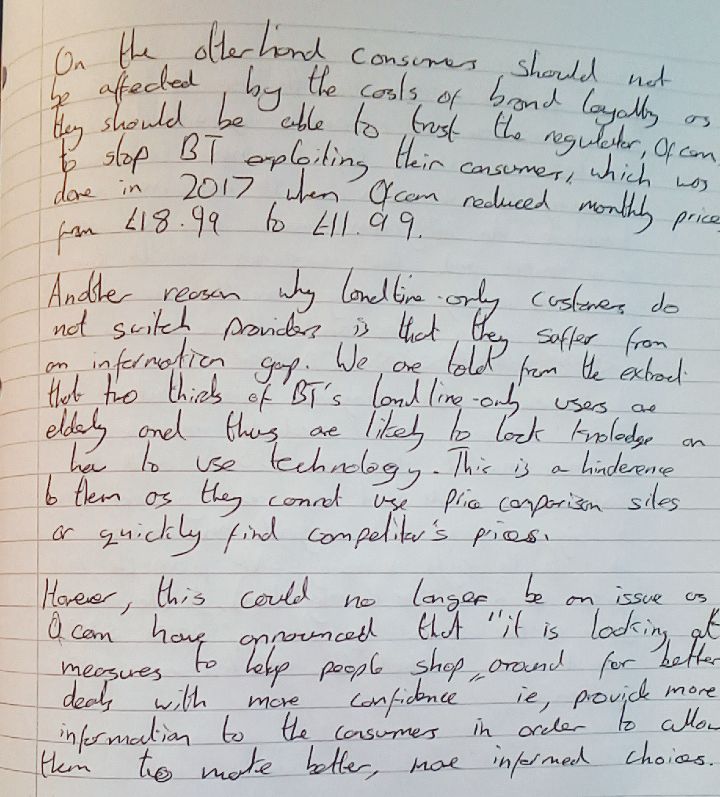 On the other hand consumers should not
be affected by the costs of brand loyalty as
they should be able to trust the regulator, Ofcom,
to stop BT exploiting their consumers, which was
done in 2017 when Ofcom reduced monthly price
from £18.99 to £11.99.
Another reason why landline-only customers do
not switch providers is that they suffer from
an information gap. We are told from the extract
that two thirds of BT's landline-only users are
elderly and thus are likely to lack knoledge on
how to use technology. This is a hinderence
to them as they cannot use price comparison sites
or quickly find competitor's prices.
However, this could no longer be an issue as
Ofcom have announced that "it is looking at
measures to help people shop around for better
deals with more confidence" ie, provide more
information to the consumers in order to allow
them to make better, more informed choices.